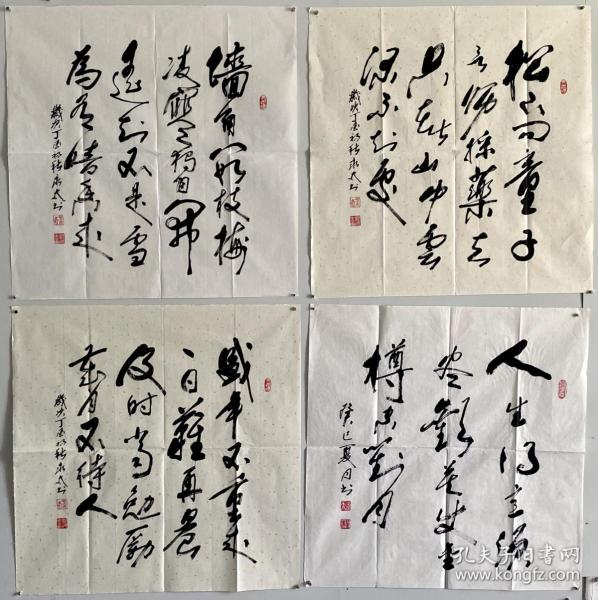 墻角数枝梅
凌寒獨自開
遥知不是雪
為有暗香来
歲次丁酉初秋
松下问童子
言師採藥去
只在此山中雲
深不知處
歲次丁酉初秋
盛年不重来
一日難再晨
及时当勉励
歲月不待人
歲次丁酉初秋
人生得意須
尽歡莫使金
樽空對月
癸巳夏月书
孔夫子旧书网
www.kongfz.com